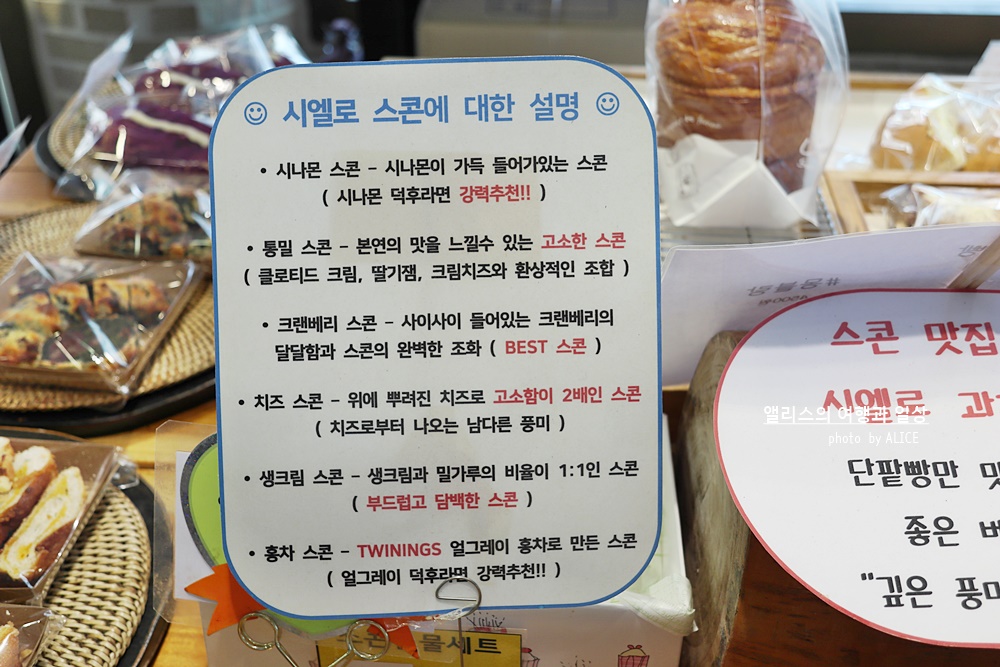 시엘로 스콘에 대한 설명
• 시나몬 스콘 - 시나몬이 가득 들어가있는 스콘
( 시나몬 덕후라면 강력추천!! )
• 통밀 스콘 - 본연의 맛을 느낄수 있는 고소한 스콘
( 클로티드 크림, 딸기잼, 크림치즈와 환상적인 조합 )
• 크랜베리 스콘 - 사이사이 들어있는 크랜베리의
달달함과 스콘의 완벽한 조화 ( BEST 스콘 )
• 치즈 스콘 - 위에 뿌려진 치즈로 고소함이 2배인 스콘
( 치즈로부터 나오는 남다른 풍미 )
• 생크림 스콘 - 생크림과 밀가루의 비율이 1:1인 스콘
( 부드럽고 담백한 스콘 )
• 홍차 스콘 - TWININGS 얼그레이 홍차로 만든 스콘
( 얼그레이 덕후라면 강력추천!! )
스콘 맛집
시엘로
단팥빵만
좋은
"깊은 풍미
앨리스의 여행과 일상
photo by ALICE
물세트